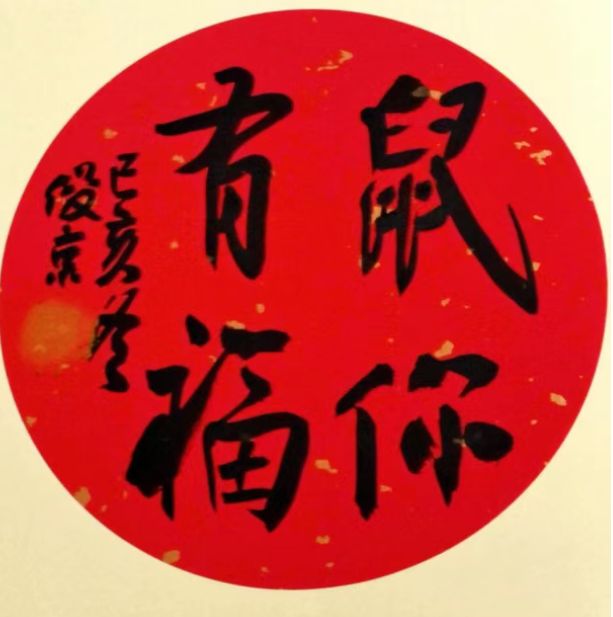 鼠你
有福
己亥冬
俊京